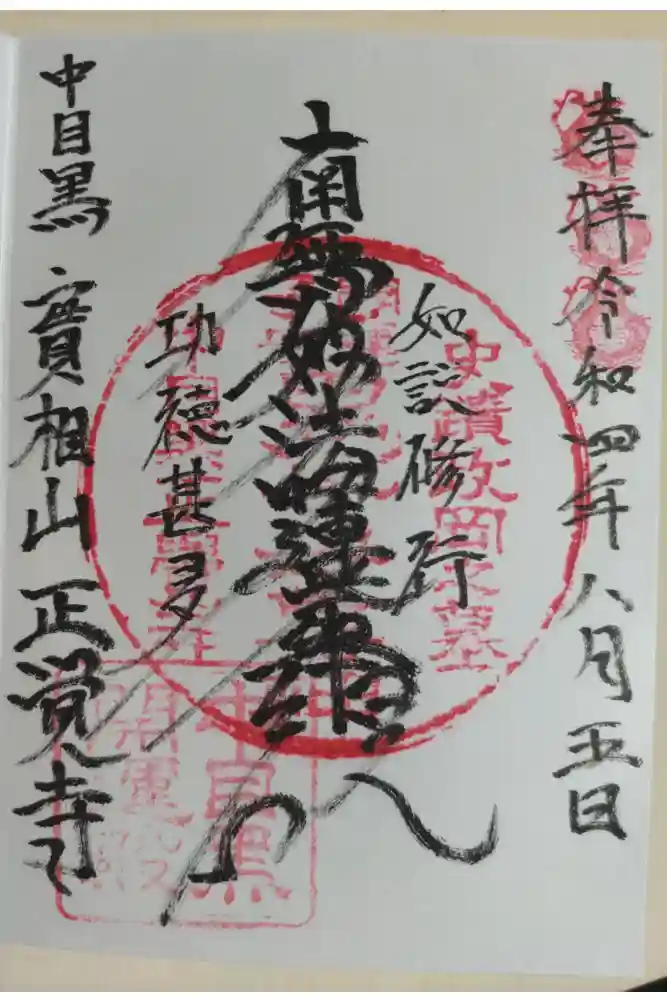 奉拝 令和四年八月五日
如説修行
南無妙法蓮華経
功徳甚多
中目黒 實相山 正覚寺
中目黒
開運殿